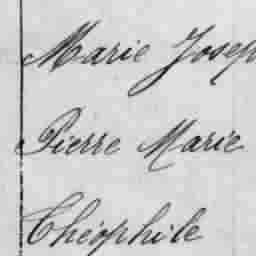 Marie Josep
Pierre Marie
Théophile